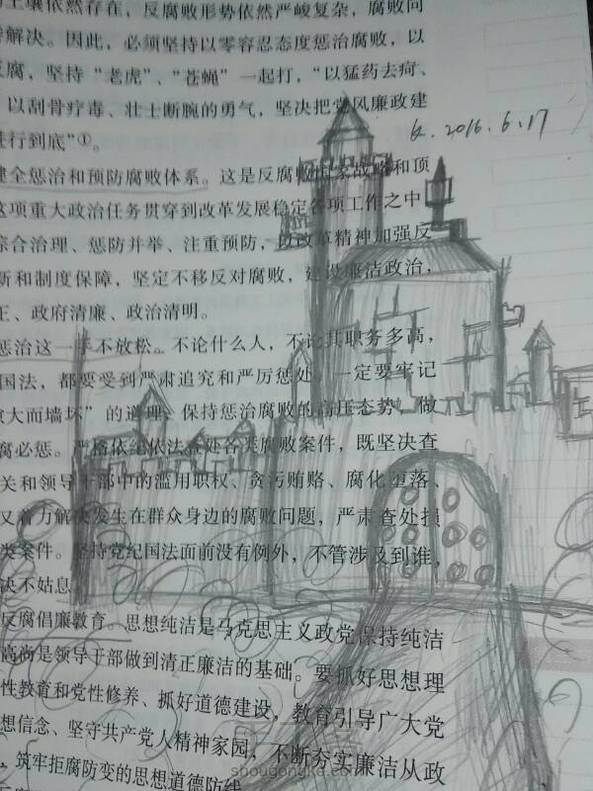 土壤依然存在，反腐败形势依然严峻复杂，腐败问
解决。因此，必须坚持以零容忍态度惩治腐败，以
反腐，坚持“老虎”、“苍蝇”一起打，“以猛药去疴、
以刮骨疗毒、壮士断腕的勇气，坚决把党风廉政建
进行到底”①。
2016.6.17
建全惩治和预防腐败体系。这是反腐败国家战略和顶
这项重大政治任务贯穿到改革发展稳定各项工作之中，
综合治理、惩防并举、注重预防，以改革精神加强反
新和制度保障，坚定不移反对腐败，建设廉洁政治，
正、政府清廉、政治清明。
惩治这一手不放松。不论什么人，不论其职务多高，
国法，都要受到严肃追究和严厉惩处。一定要牢记
大而墙坏”的道理，保持惩治腐败的高压态势，做
腐必惩。严格依纪依法查处各类腐败案件，既坚决查
关和领导干部中的滥用职权、贪污贿赂、腐化堕落、
又着力解决发生在群众身边的腐败问题，严肃查处损
类案件。坚持党纪国法面前没有例外，不管涉及到谁，
决不姑息
反腐倡廉教育。思想纯洁是马克思主义政党保持纯洁
高尚是领导干部做到清正廉洁的基础。要抓好思想理
性教育和党性修养、抓好道德建设，教育引导广大党
想信念、坚守共产党人精神家园，不断夯实廉洁从政
，筑牢拒腐防变的思想道德防线
shougongke.com